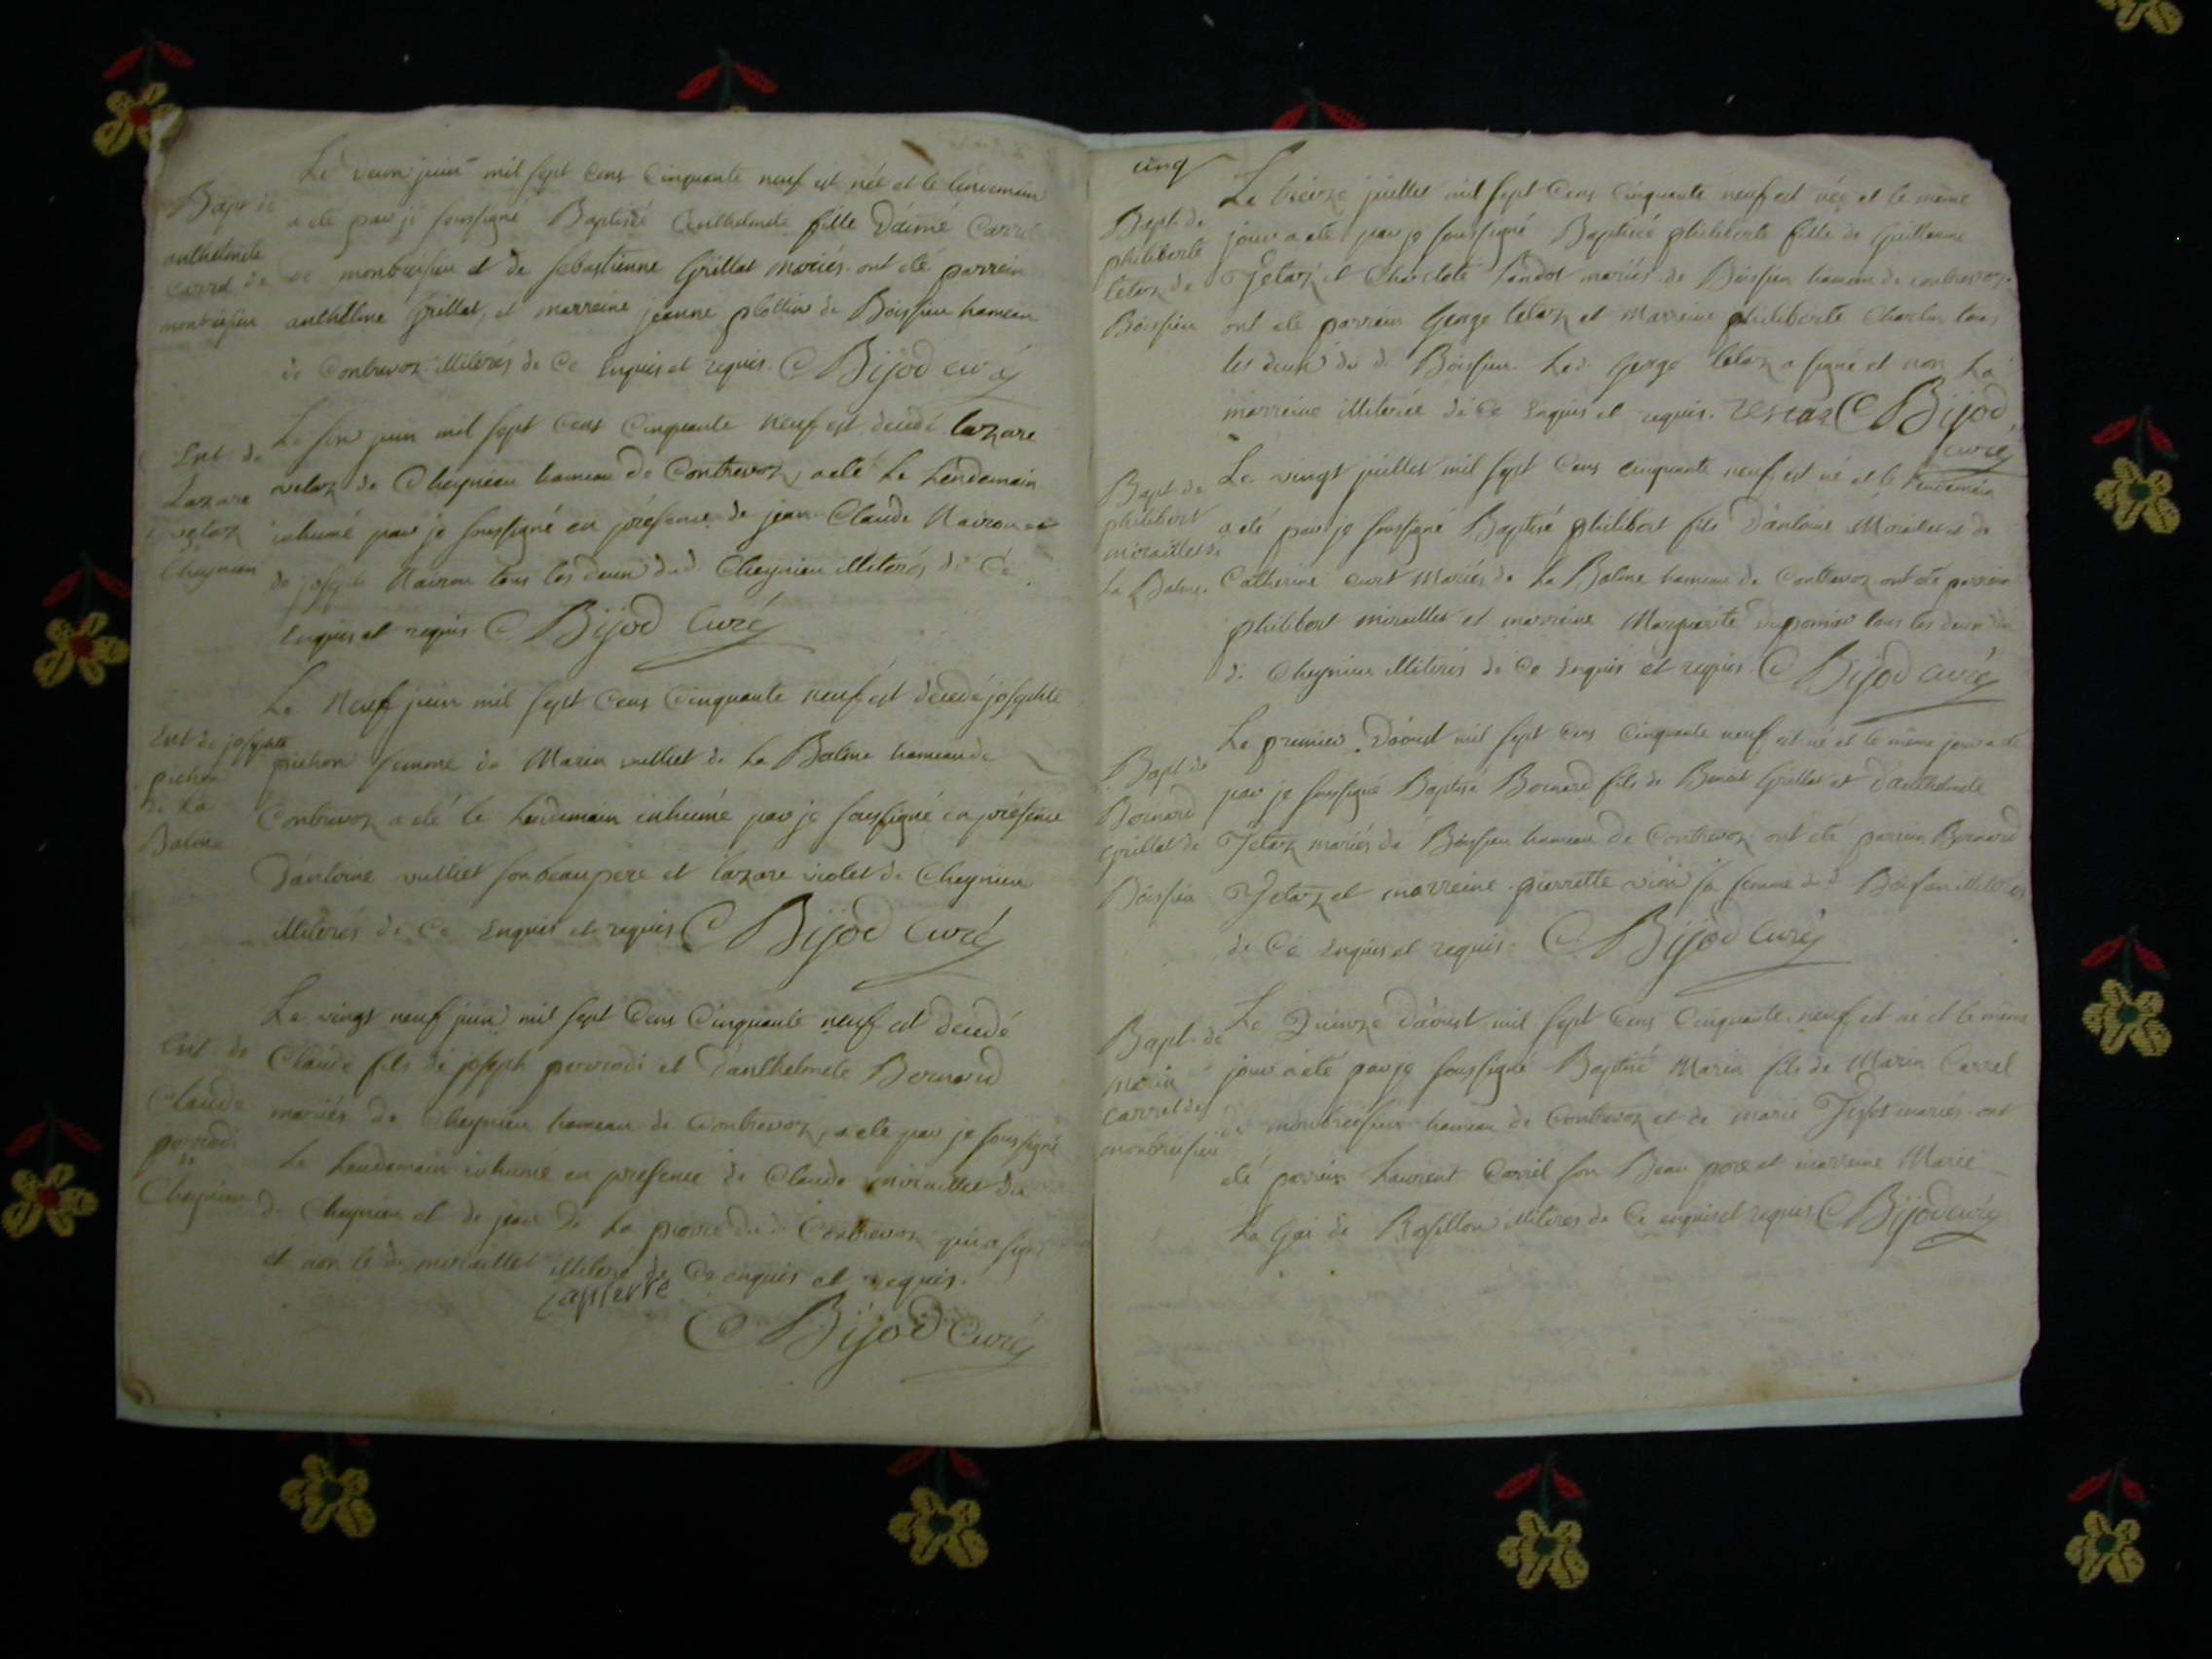 Le deux juin mil sept cens cinquante neuf est née et le lendemain
Bapt de
a eté par je soussigné Baptisée Anthelmete fille d'aimé Carrel
anthelmete
carrel de
de montbreisieu et de sebastienne Grillat mariés ont été parrein
montbreisieu
anthelme Grillat, et marreine jeanne de Boissieu hameau
de Contrevoz illiterés de Ce Enquis et requis. Bijod curé
Ent de
Lazare
vetaz
Cheynieu
Le six juin mil sept cens cinquante neuf est decedé lazare
vetaz de Cheynieu hameau de Contrevoz, a eté le Lendemain
inhumé par je soussigné en présence de jean Claude Nairou et
de joseph Nairou tous les deux dud. Cheynieu illiterés de Ce
Enquis et requis Bijod Curé
Ent de josephte
pichon
de La
Balme
Le Neuf juin mil sept cens cinquante neuf est decedé josephte
pichon femme de Marin vulliet de La Balme hameau de
Contrevoz a eté le Lendemain inhumée par je soussigné en présence
d'antoine vulliet son beau pere et lazare violet de Cheynieu
illiterés de Ce Enquis et requis Bijod Curé
Ent de
Claude
de
Cheynieu
Le vingt neuf juin mil sept Cens Cinquante neuf est decedé
Claude fils de joseph et d'anthelmete Bernard
mariés de Cheynieu hameau de Contrevoz, a eté par je soussigné
Le Lendemain inhumé en presence de Claude miraillet du
d. Cheynieu et de jean de La pierre du d. Contrevoz qui a signé
et non le d. miraillet illiteré de Ce enquis et requis.
Lapierre
Bijod Curé
cinq
Bapt. de
philiberte
tetaz de
Boissieu
Le treize juillet mil sept Cens Cinquante neuf est née et le même
jour a eté par je soussigné Baptisée philiberte fille de Guillaume
Tetaz et Charlote mariés de Boissieu hameau de contrevoz.
ont eté parrain George tetaz et Marreine philiberte Charlin tous
les deux du d. Boissieu. Led. George tetaz a signé et non La
marreine illiterée de Ce Enquis et requis. Tetaz Bijod
curé
Bapt de
philibert
miraillet de
La Balme.
Le vingt juillet mil sept Cens cinquante neuf est né et le Lendemain
a eté par je soussigné Baptisé philibert fils d'antoine Miraillet et de
Catherine curt Mariés de La Balme hameau de Contrevoz ont eté parrain
philibert miraillet et marreine Marguerite dupomier tous les deux du
d. Cheynieu illiterés de Ce Enquis et requis Bijod curé
Bapt de
Bernard
Grillat de
Boissieu
Le premier d'aoust mil sept Cens Cinquante neuf est né et le même jour a eté
par je soussigné Baptisé Bernard fils de Benoit Grillat et d'anthelmete
Tetaz mariés de Boissieu hameau de Contrevoz ont eté parrein Bernard
Tetaz et marreine pierrette sa femme du d. Boissieu illiterés
de Ce Enquis et requis Bijod Curé
Bapt de
Marin
carrel de
montbreisieu
Le Quinze d'aoust mil sept Cens Cinquante neuf est né et le même
jour a eté par je soussigné Baptisé Marin fils de Marin Carrel
de montbreisieu hameau de Contrevoz et de marie mariés ont
eté parrein Laurent Carrel son Beau pere et marreine Marie
La Gai de Rossillon illiteres de Ce enquis et requis Bijod curé